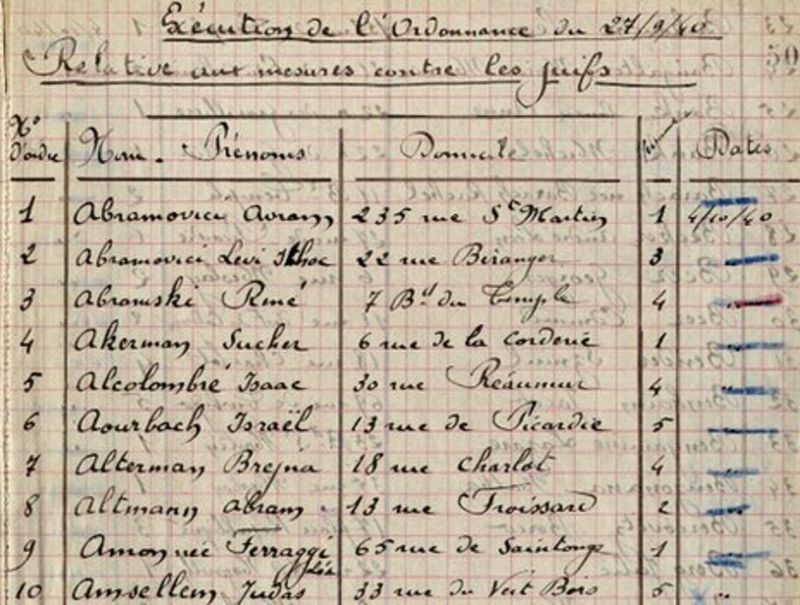 Exécution de l'Ordonnance du 27/9/40
50
Relative aux mesures contre les juifs
N° d'ordre Nom. Prénoms Domicile Dates
1 Abramovici Avram 235 rue St Martin 1 4/10/40
2 Abramovici Levi 22 rue Béranger 3 "
3 Abramski René 7 Bd du Temple 4 "
4 Akerman Sucher 6 rue de la Corderie 1 "
5 Alcolombré Isaac 30 rue Réaumur 4 "
6 Aourbach Israël 13 rue de Picardie 5 "
7 Alterman Brejna 18 rue Charlot 4 "
8 Altmann Abram 13 rue Froissard 2 "
9 Amon née Ferraggi Léa 65 rue de Saintonge 1 "
10 Amsellem Judas 33 rue du Vert Bois 5 "